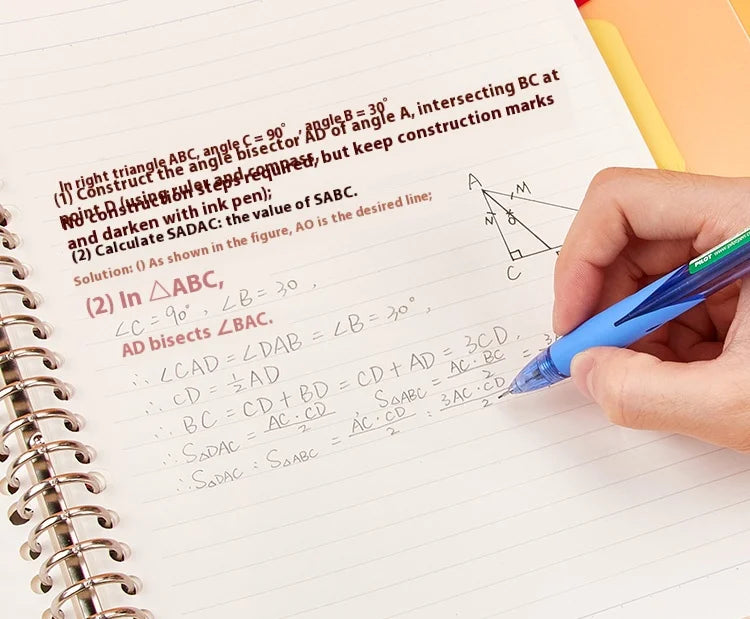 In right triangle ABC, angle C = 90° , angle B = 30°
(1) Construct the angle bisector AD of angle A, intersecting BC at
point D (using ruler and compass,
No construction steps required, but keep construction marks
and darken with ink pen);
(2) Calculate SADAC: the value of SABC.
Solution: () As shown in the figure, AO is the desired line;
(2) In △ABC,
∠C = 90°, ∠B = 30°,
AD bisects ∠BAC.
∴ ∠CAD = ∠DAB = ∠B = 30°,
∴ CD = 1/2 AD
∴ BC = CD + BD = CD + AD = 3CD,
∴ S△DAC = AC·CD/2, S△ABC = AC·BC/2 =
∴ S△DAC : S△ABC = AC·CD/2 : 3AC·CD/2
A
M
N
C
PILOT